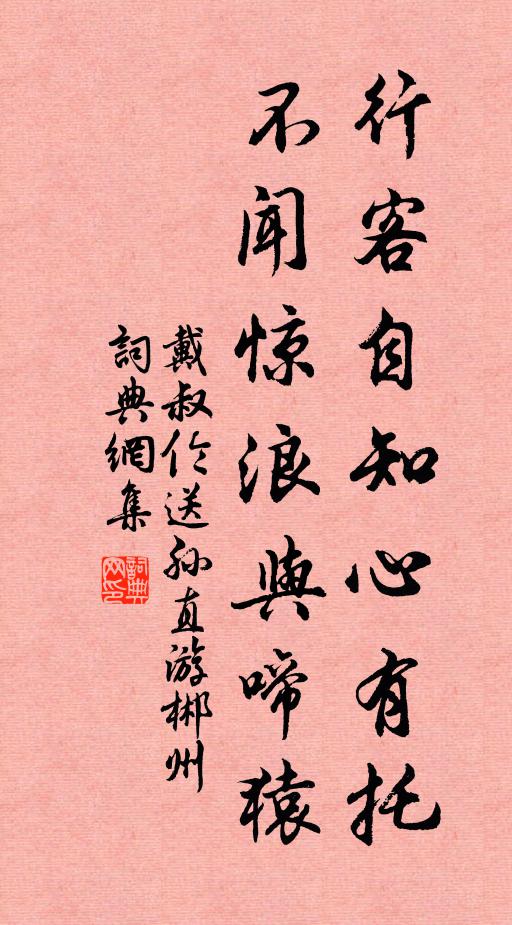 行客自知心有托
不闻惊浪與啼猿
戴叔伦送孙直游郴州
詞典網集
詞典网印